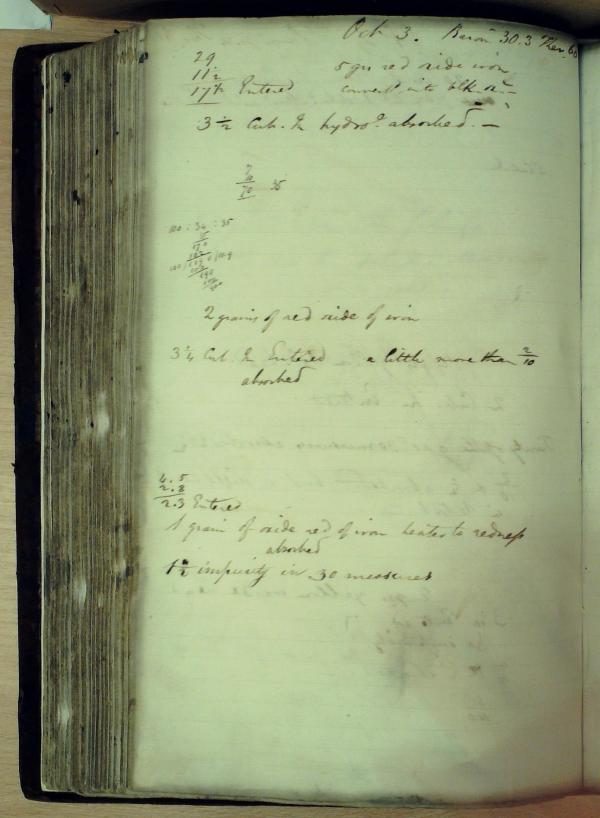 Oct 3. Barom 30.3 Ther. 60
29
11½
17½ Entered
5 grs red oxide iron
convert into blk ox -
3 ½ Cub. In hydro. absorbed. -
70 35
100 : 34 : 35
2 grains of red oxide of iron
3 ¼ Cub. In Entered a little more than 2/10
absorbed
4.5
2.2
2.3 Entered
1 grain of oxide red of iron heated to redness
absorbed
1 ½ impurity in 30 measures